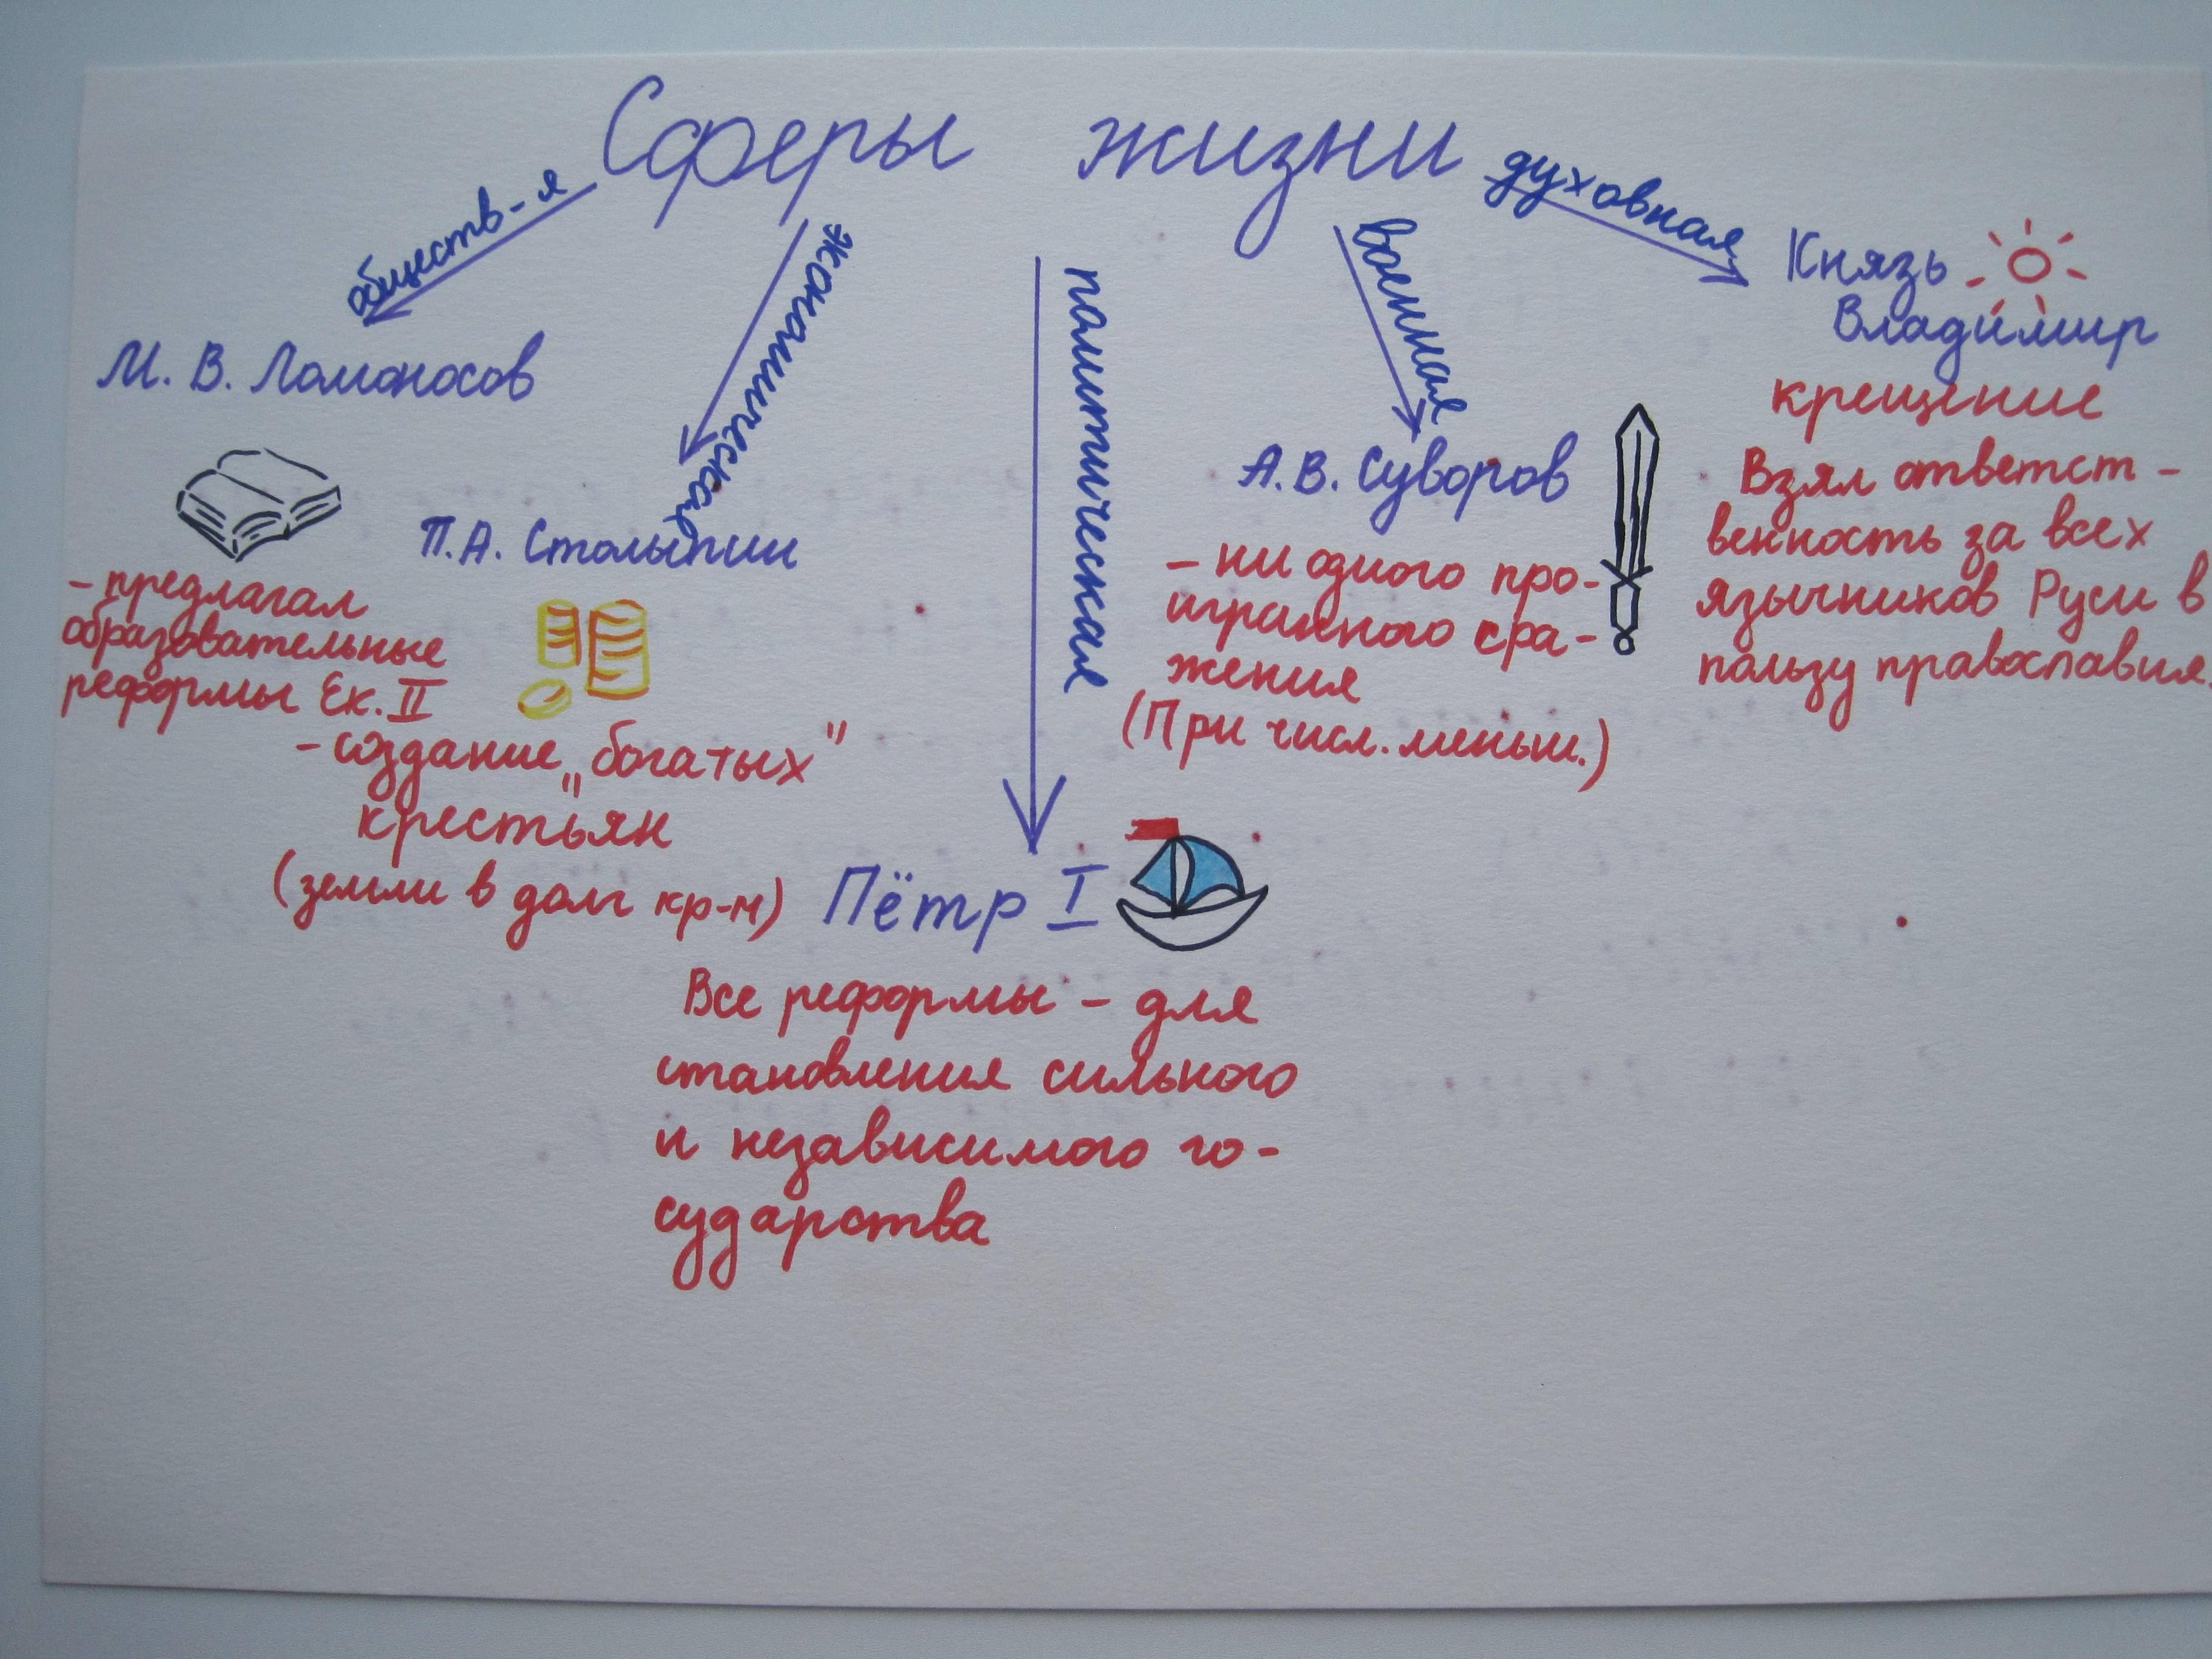 Сферы жизни
обществ-я
М. В. Ломоносов
- предлагал
образовательные
реформы Ек. II
экономическая
П.А. Столыпин
- создание „богатых"
крестьян
(земли в долг кр-м)
политическая
Пётр I
Все реформы - для
становления сильного
и независимого го-
сударства
военная
А.В. Суворов
- ни одного про-
игранного сра-
жения
(При числ. меньш.)
духовная
Князь
Владимир
крещение
Взял ответст-
венность за всех
язычников Руси в
пользу православия.